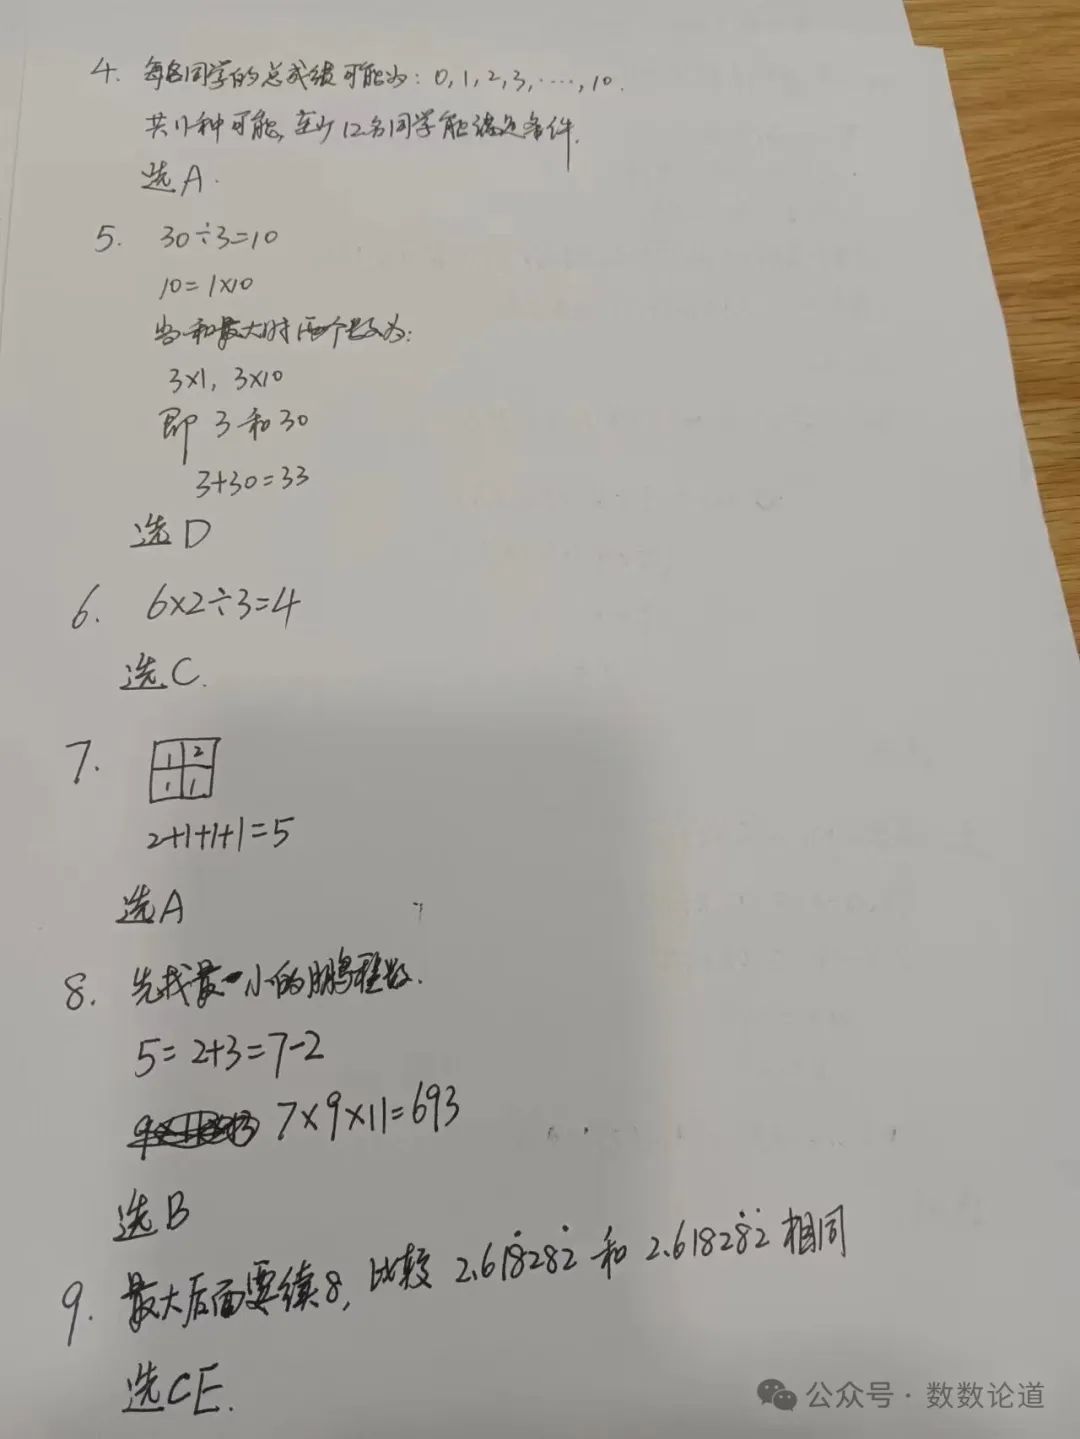 4. 每名同学的总成绩可能为: 0, 1, 2, 3, ……, 10.
共11种可能, 至少12名同学能满足条件.
选A.
5. 30÷3=10
10=1×10
当和最大时两个数为:
3×1, 3×10
即 3和30
3+30=33
选D
6. 6×2÷3=4
选C.
7.
1 2
1 1
2+1+1+1=5
选A
8. 先找最小的鹏程数.
5=2+3=7-2
7×9×11=693
选B
9. 最大后面要续8, 比较 2.618̇282̇ 和 2.61828̇2̇ 相同
选CE.
公众号·数数论道